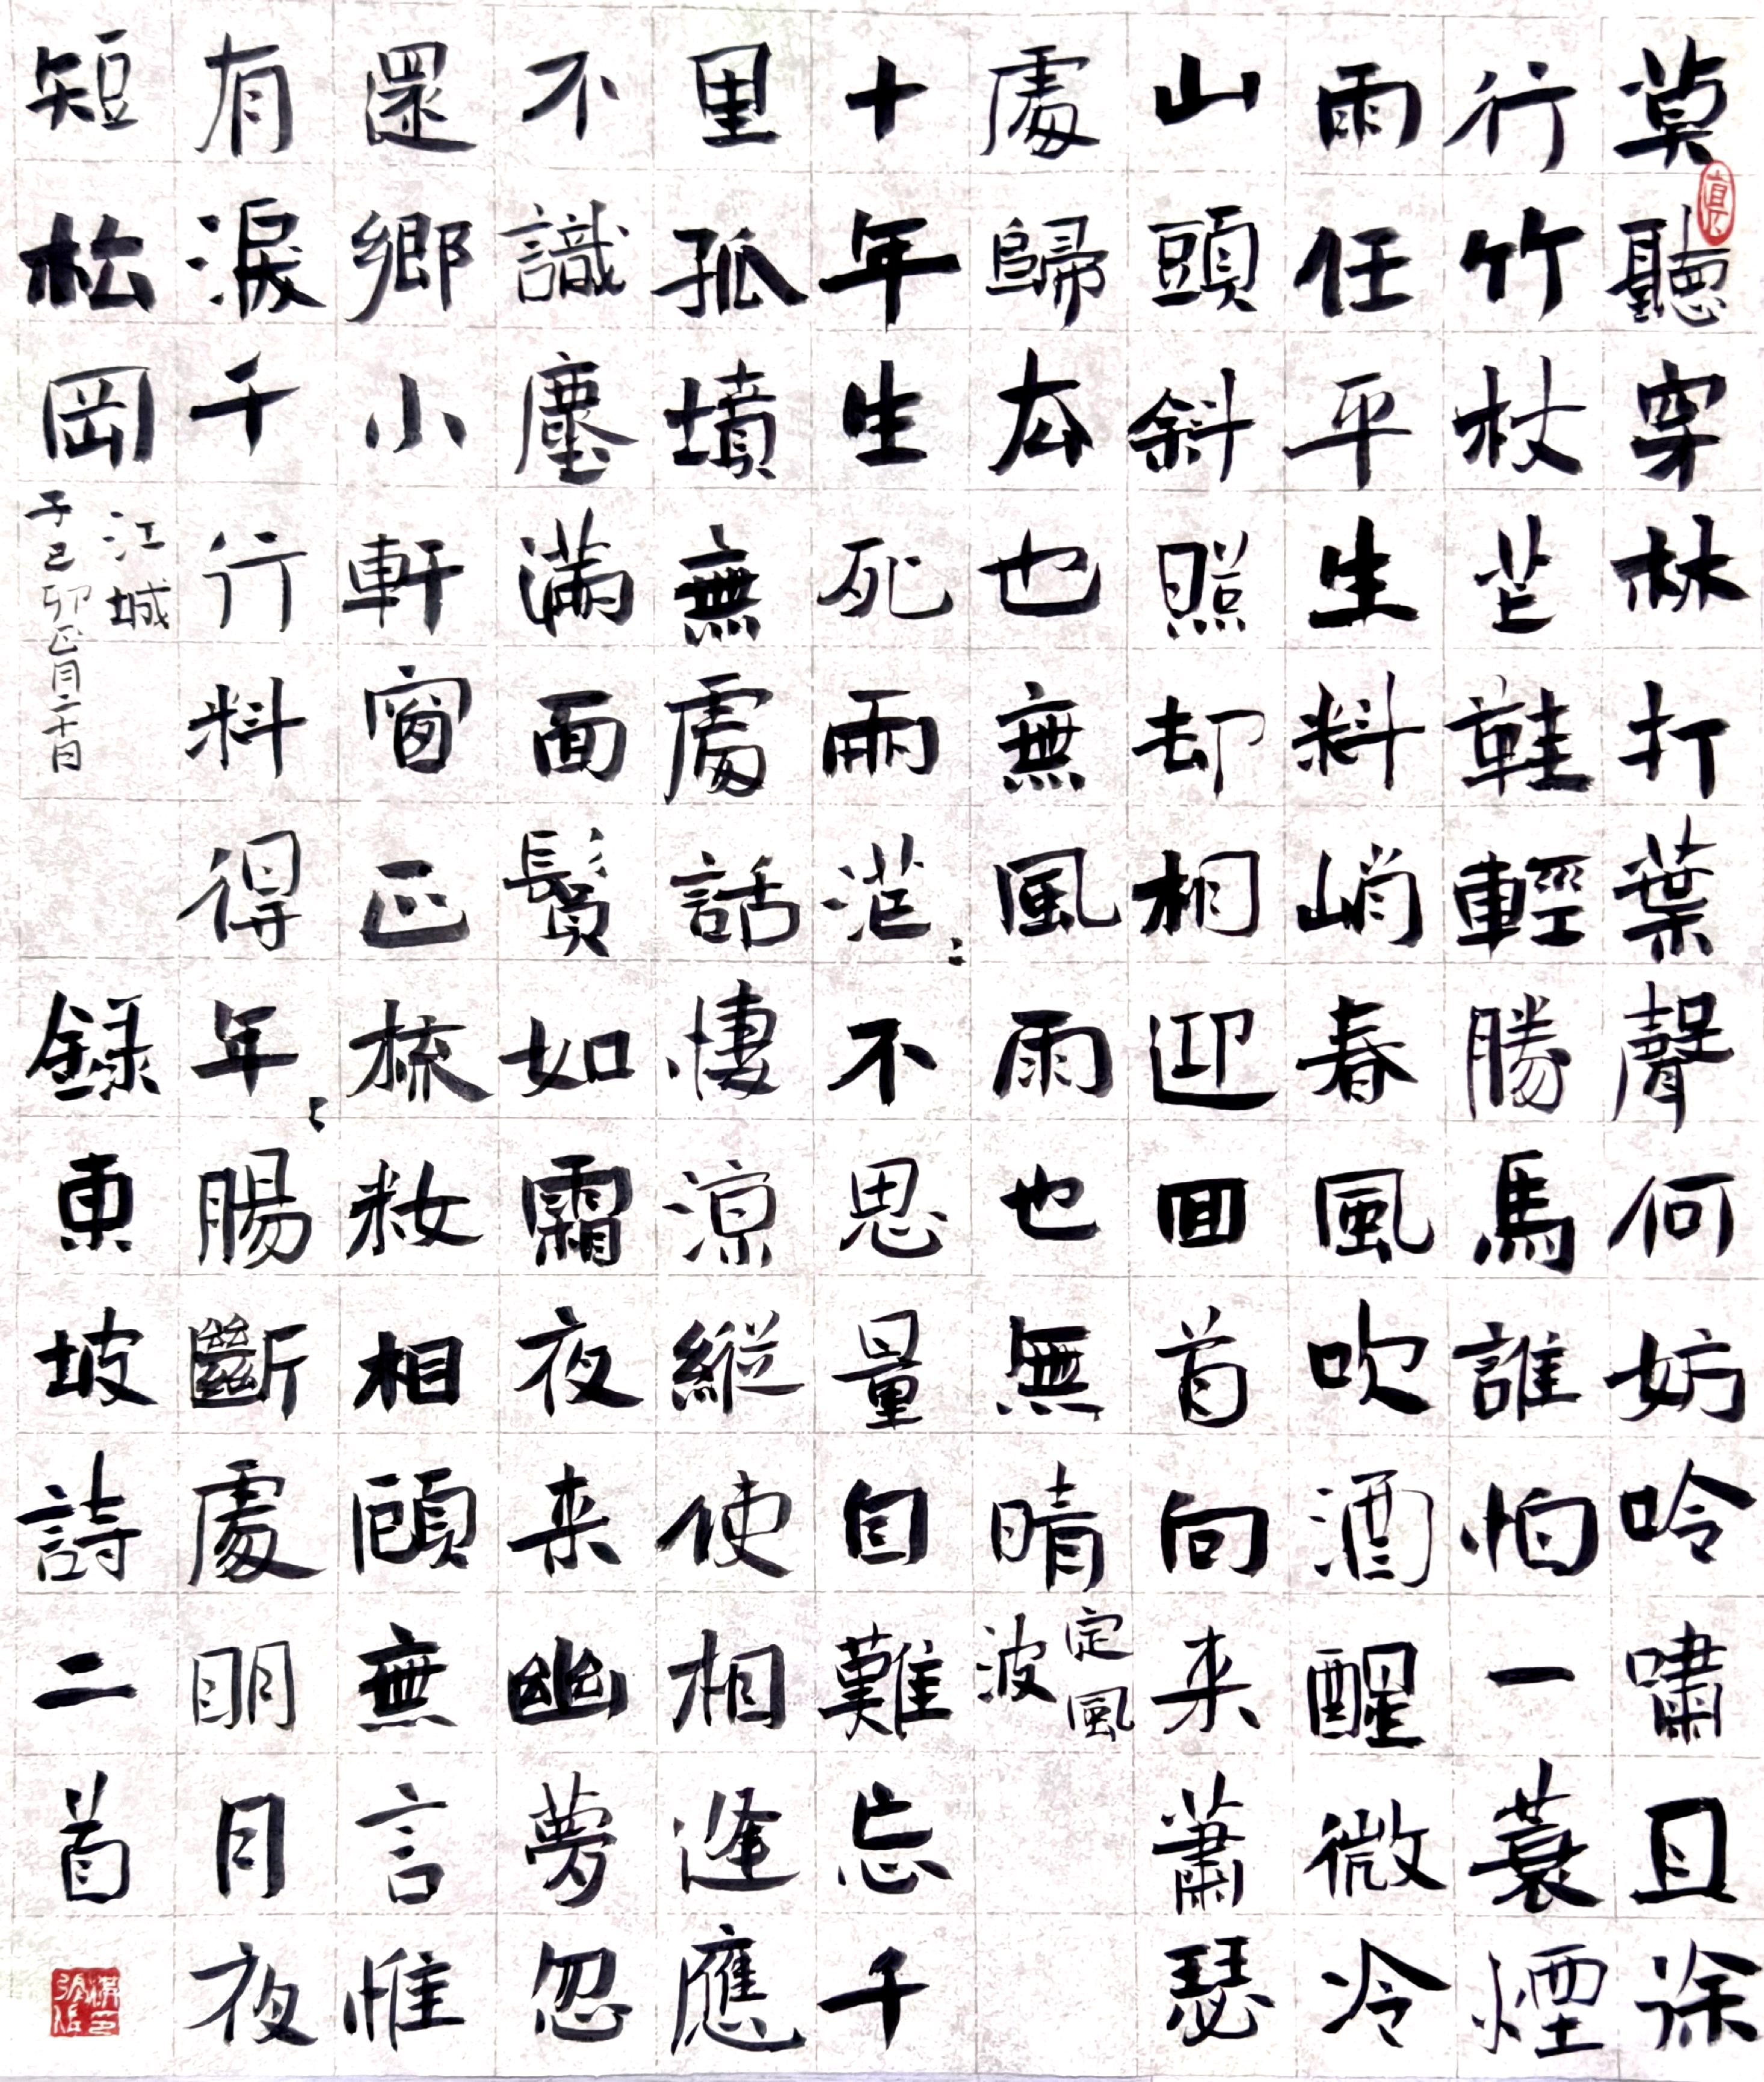 莫聽穿林打葉聲何妨吟嘯且徐
行竹杖芒鞋輕勝馬誰怕一蓑煙
雨任平生料峭春風吹酒醒微冷
山頭斜照却相迎回首向来蕭瑟
處歸去也無風雨也無晴
定風
波
十年生死兩茫〻不思量自難忘千
里孤墳無處話悽涼縱使相逢應
不識塵滿面鬢如霜夜来幽夢忽
還鄉小軒窗正梳妝相顧無言惟
有淚千行料得年〻腸斷處明月夜
短松岡
江城
子己卯正月二十日
錄東坡詩二首